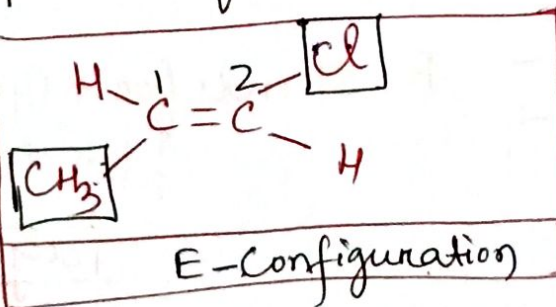 H 1 2 Cl
C = C
CH3 H
E-Configuration